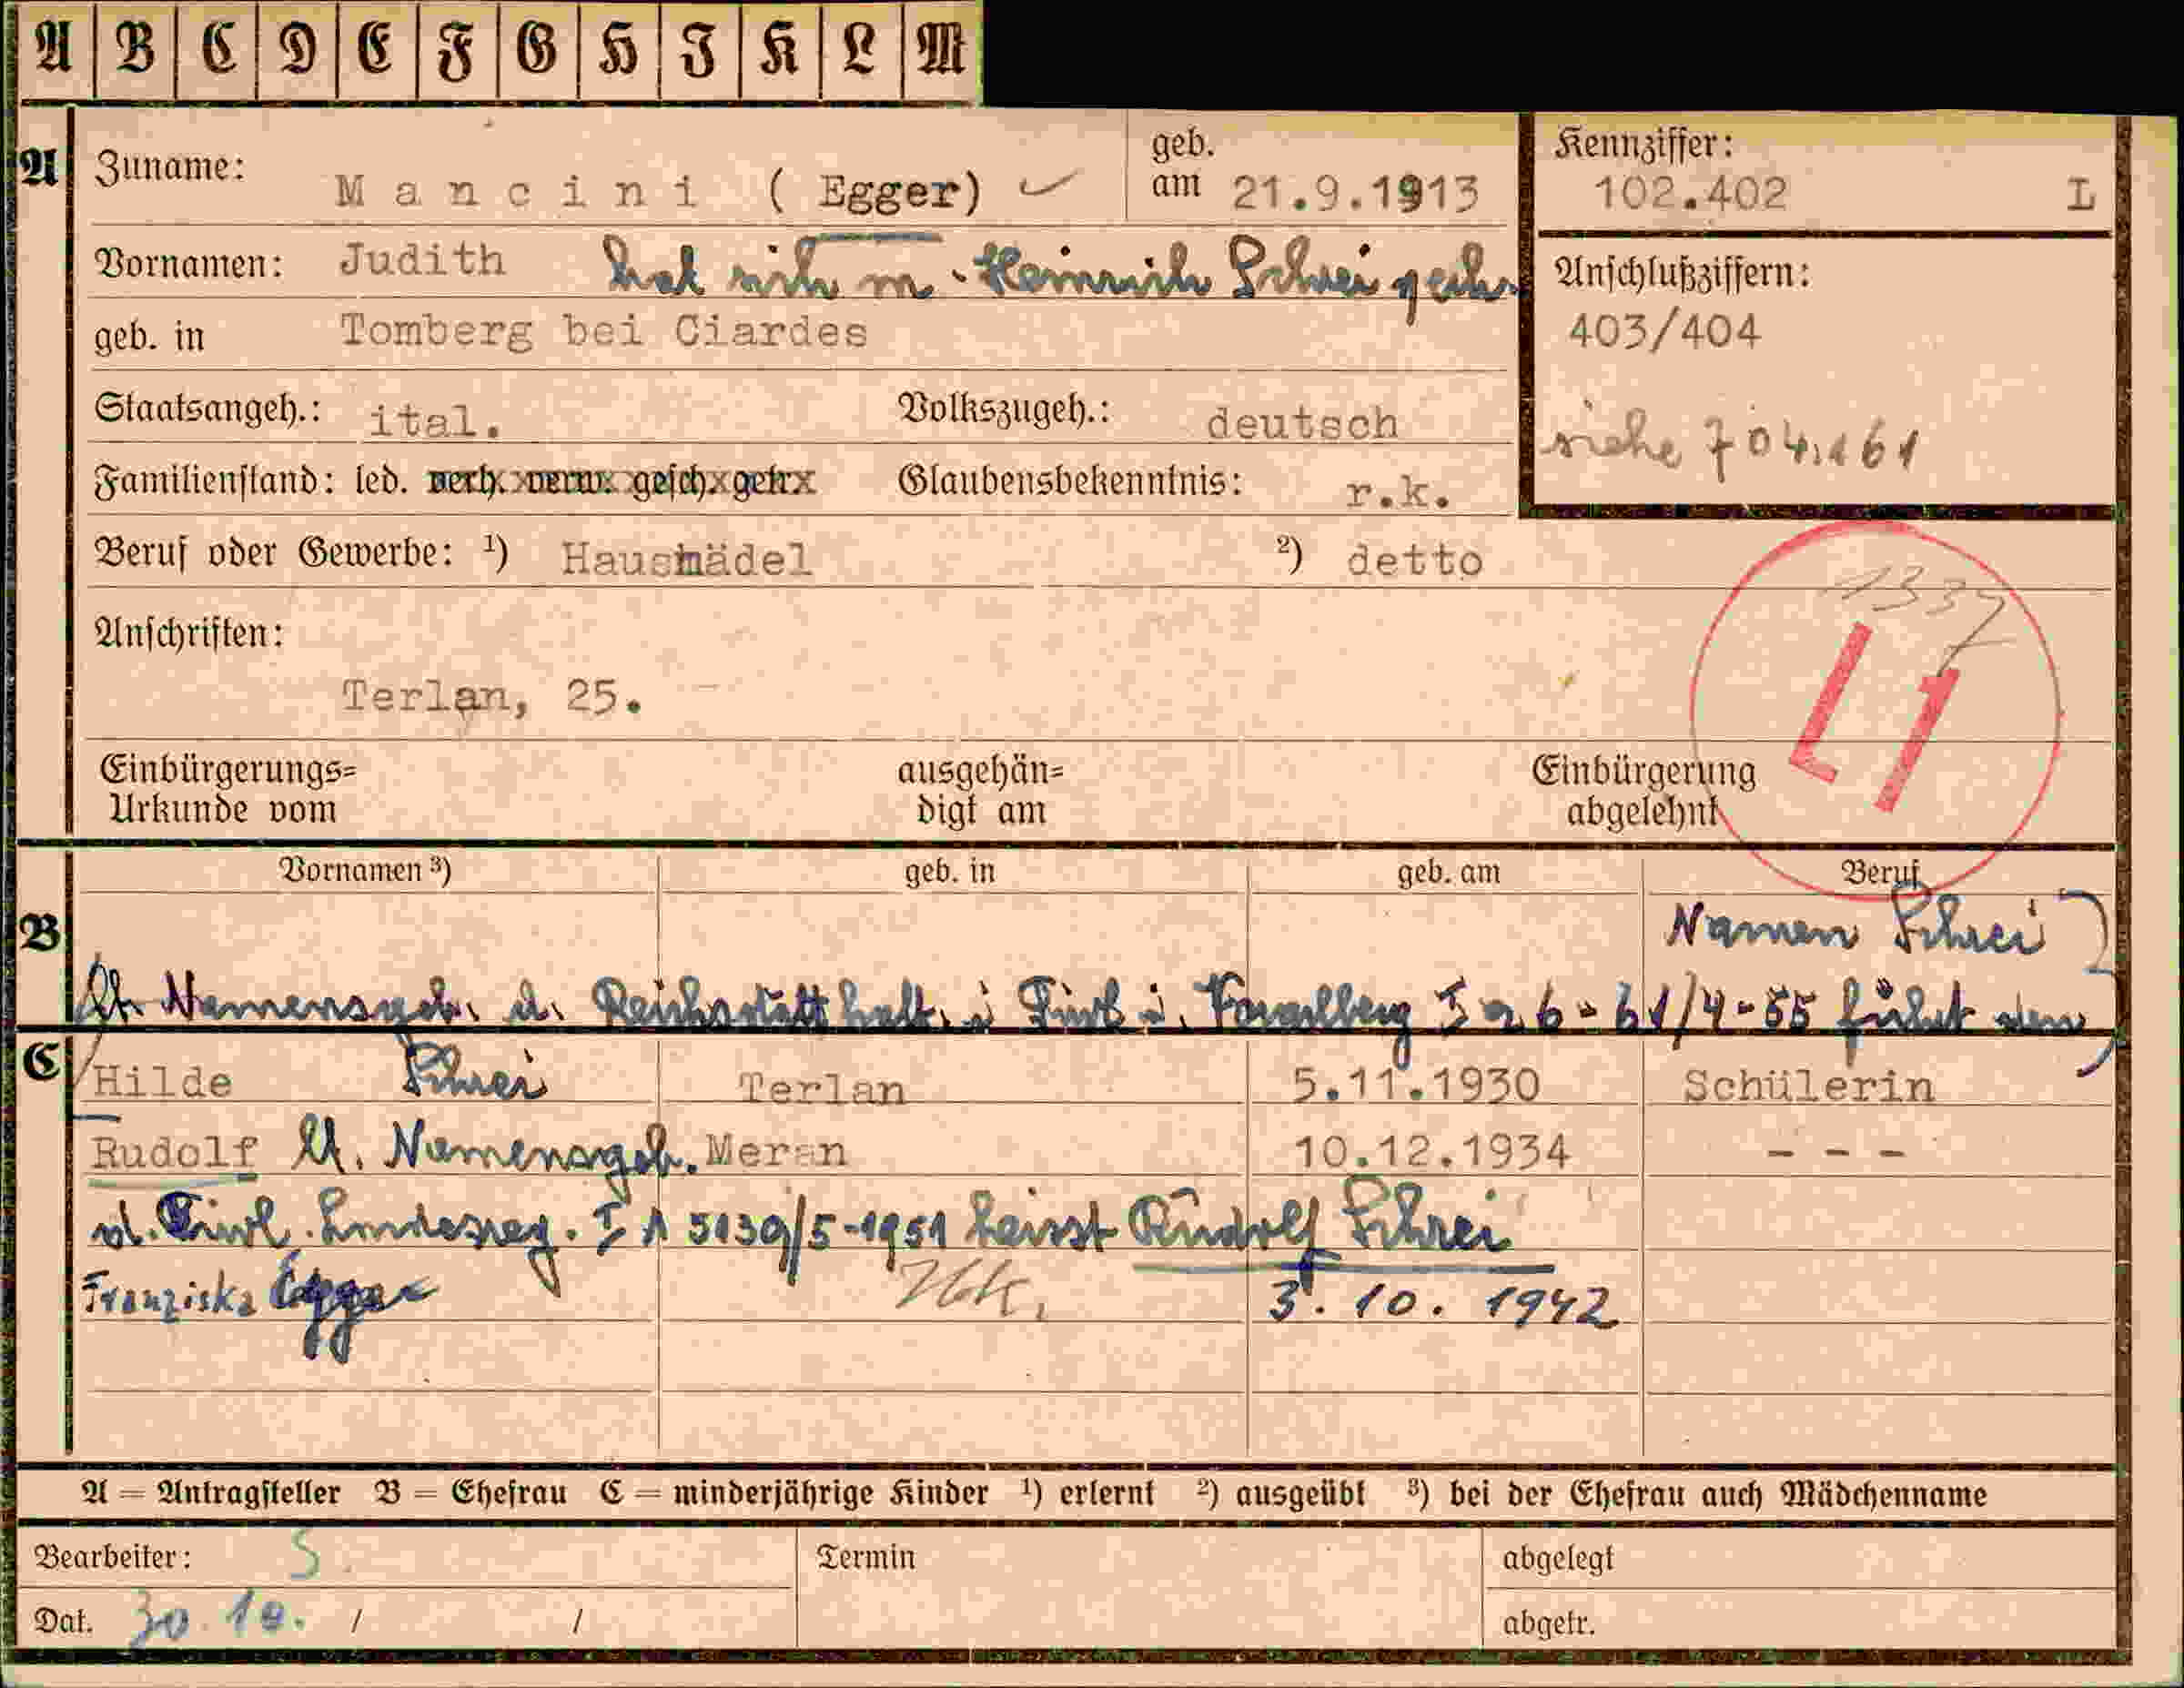 A B C D E F G H I K L M
A Zuname: Mancini (Egger) geb. am 21.9.1913 Kennziffer: 102.402 L
Vornamen: Judith hat sich m. Heinrich Schrei Anschlußziffern:
geb. in Tomberg bei Ciardes 403/404
Staatsangeh.: ital. Volkszugeh.: deutsch siehe 704.161
Familienstand: led. verh. verw. gesch. getr. Glaubensbekenntnis: r.k.
Beruf oder Gewerbe: ¹) Hausmädel ²) detto
1337
Anschriften:
L1
Terlan, 25.
Einbürgerungs= ausgehän= Einbürgerung
Urkunde vom digt am abgelehnt
Vornamen ³) geb. in geb. am Beruf
B Namen Schrei
lt. Namensgeb. d. Reichsstatthalt. i Tirol u. Vorarlberg I a 6 - 61/4-55 führt den
C Hilde Schrei Terlan 5.11.1930 Schülerin
Rudolf lt. Namensgeb. Meran 10.12.1934 - - -
d. Tirol. Landesreg. I A 5139/5-1951 heisst Rudolf Schrei
Franziska Egger 3. 10. 1942
A = Antragsteller B = Ehefrau C = minderjährige Kinder ¹) erlernt ²) ausgeübt ³) bei der Ehefrau auch Mädchenname
Bearbeiter: S. Termin abgelegt
Dat. 30.10. / / abgetr.